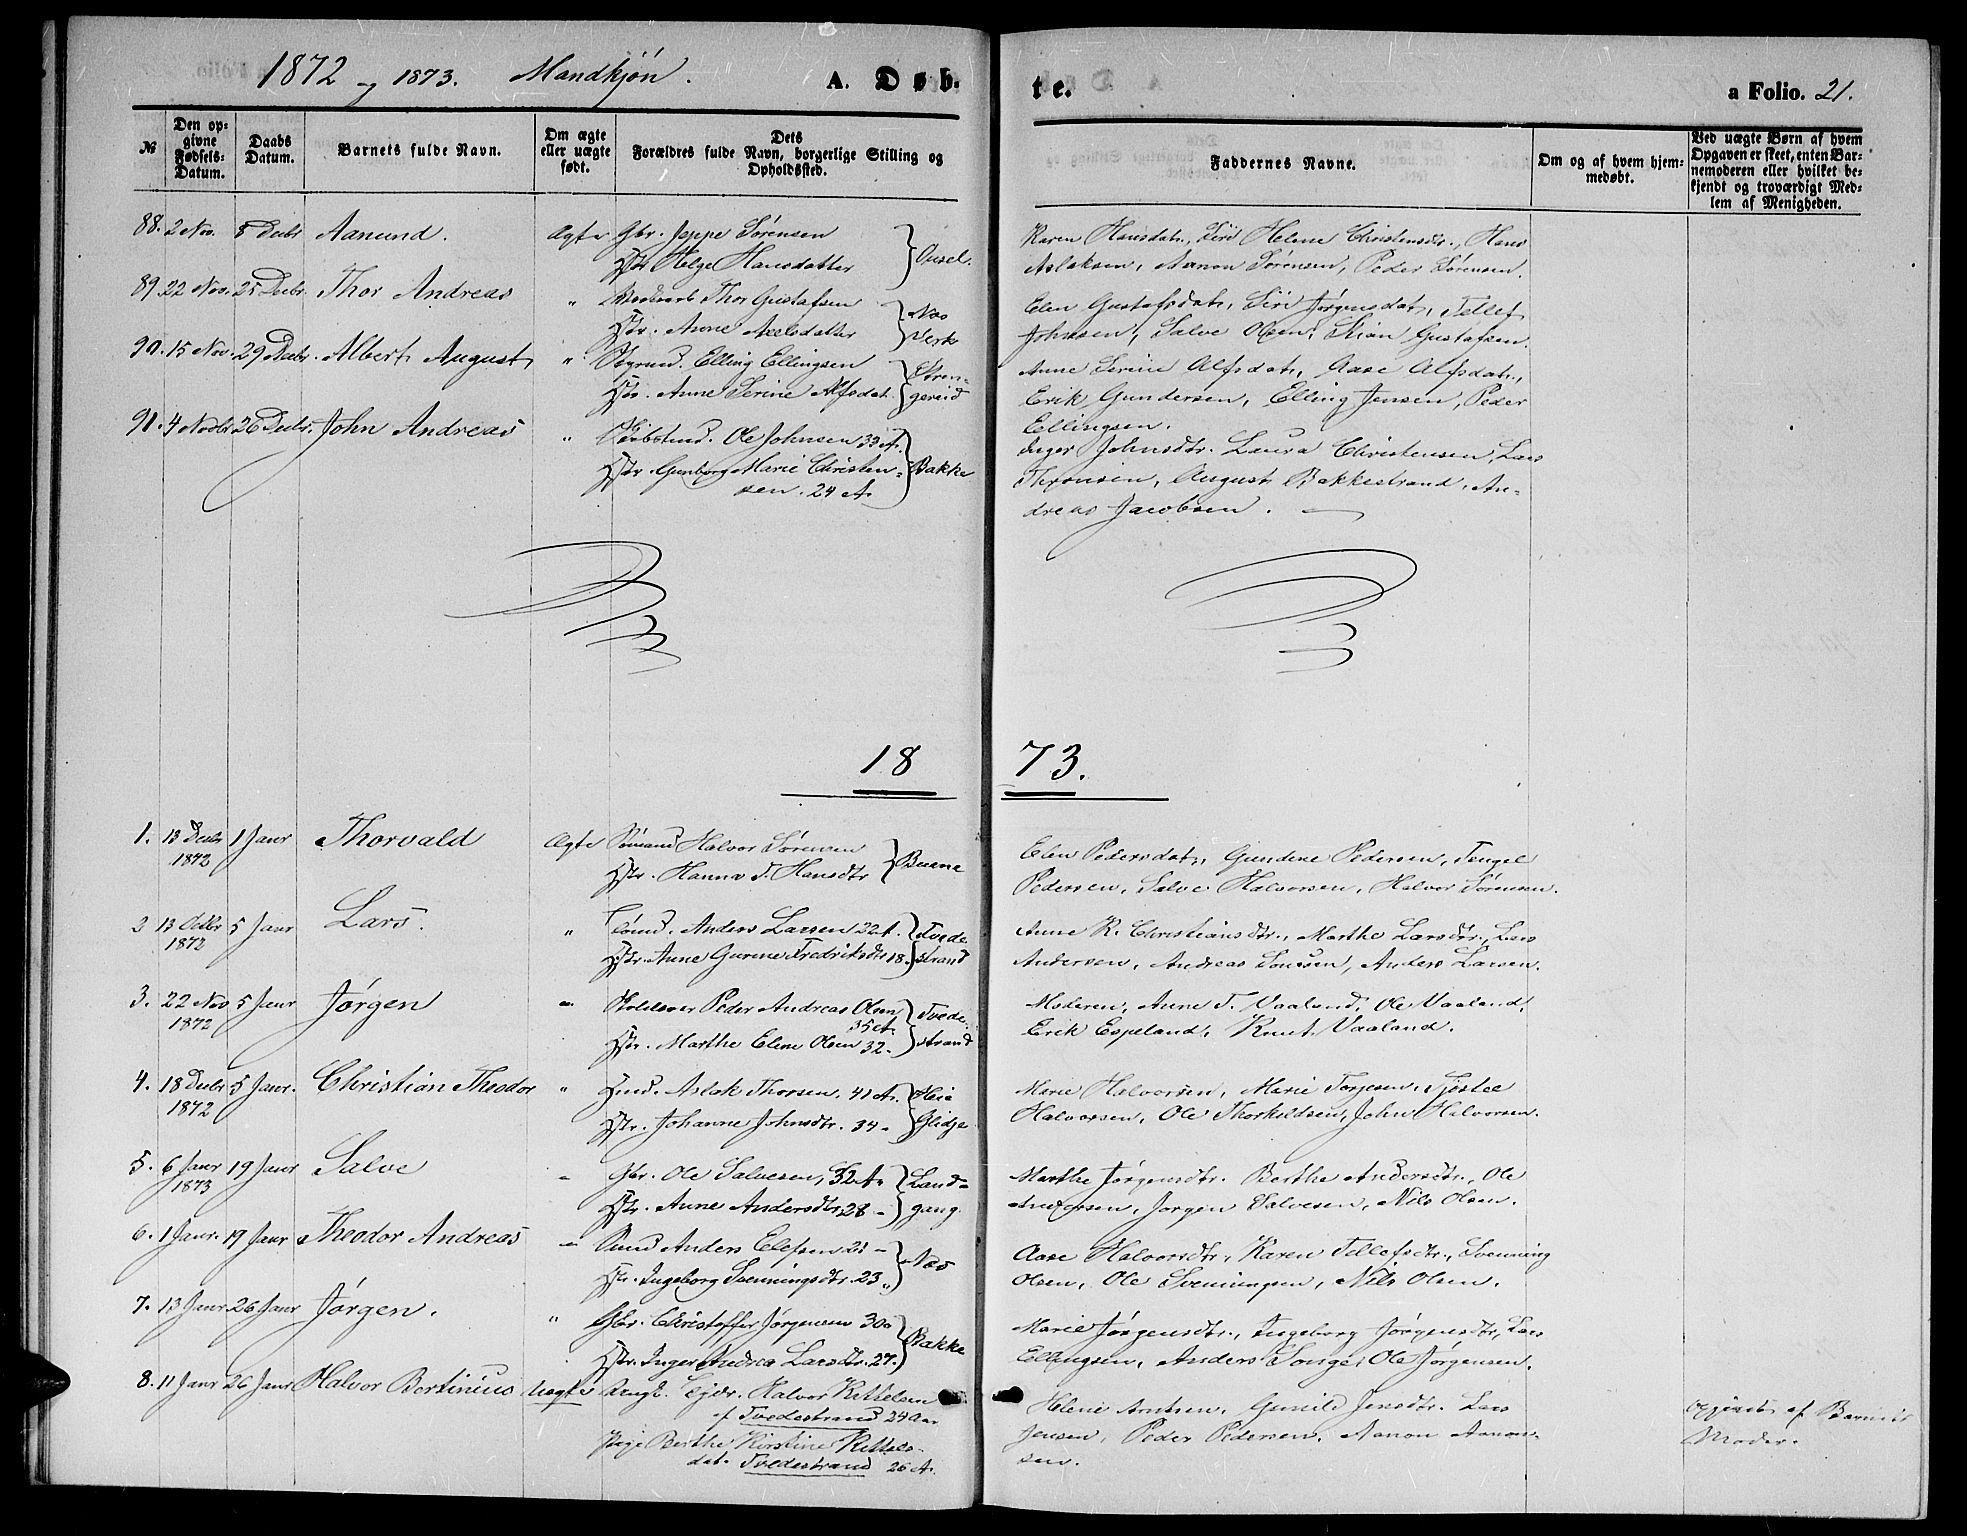 1872 og 1873. Mandkjön. A. Døb- te. a Folio. 21.
№
Den op-
givne
Fødsels-
Datum.
Daabs
Datum.
Barnets fulde Navn.
Om ægte
eller uægte
født.
Dets
Forældres fulde Navn, borgerlige Stilling og
Opholdssted.
Faddernes Navne.
Om og af hvem hjem-
medøbt.
Ved uægte Børn af hvem
Opgaven er skeet, enten Bar-
nemoderen eller hvilket be-
kjendt og troværdigt Med-
lem af Menigheden.
88. 2 Nov. 8 Decbr Aanund. Ægte Gbr. Jeppe Sørensen
Hstr Helge Hansdatter } Ousel.
Karen Hansdatr, Siri Helene Christensdtr., Hans
Aslaksen, Aanon Sørensen, Peder Sørensen.
89. 22 Nov. 25 Decbr. Thor Andreas " Thor Gustafsen
Hstr. Anne Axelsdatter } Næs
Værk
Elen Gustafsdatr, Siri Jørgensdatr, Tellef
Johnsen, Salve Olsen, Stian Gustafsen.
90. 15 Nov. 29 Decbr. Albert August " Elling Ellingsen
Hstr. Anne Serine Alfsdat. } Stren-
gereid
Anne Serine Alfsdatr, Aase Alfsdatr,
Erik Gundersen, Elling Jensen, Peder
Ellingsen.
91. 4 Novbr 26 Decbr. John Andreas " Ole Johnsen 33 A.
Hstr Gunborg Marie Christen-
sen. 24 A. } Bakke
Inger Johnsdtr. Laura Christensen, Lars
Thronsen, August Bakkestrand, An-
dreas Jacobsen.
18 73.
1. 13 Decbr 1 Janr Thorvald Ægte Sømand Halvor Sørensen
1872 Hstr. Hanna T. Hansdtr } Buene
Elen Pedersdatr, Gundene Pedersen, Tengel
Pedersen, Salve Halvorsen, Halvor Sørensen.
2 13 Octbr 5 Janr Lars. " Sømd. Anders Larsen 22 A.
1872 Hstr. Anne Gurine Fredriksdtr 18. } Tvede-
strand
Anne K. Christiansdtr., Marthe Larsdtr., Lars
Andersen, Andreas Tonesen, Anders Larsen.
3. 22 Nov 5 Janr Jørgen " Peder Andreas Olsen
1872 35 A.
Hstr. Marthe Elene Olsen 32. } Tvede-
strand
Moderen, Anne T. Vaaland, Ole Vaaland,
Erik Espeland, Knut Vaaland.
4. 18 Decbr 5 Janr. Christian Theodor " Hmd. Aslak Thorsen. 41 A.
1872 Hstr. Johanne Johnsdtr. 34 - } Heie
Glidje
Marie Halvorsen, Marie Torjesen,
Halvorsen, Ole Thorkildsen, John Halvorsen.
5. 6 Janr 19 Janr Salve " Gbr. Ole Salvesen, 32 A.
1873 Hstr. Anne Andersdtr 28 - } Land-
gang.
Marthe Jørgensdtr. Berthe Andersdtr., Ole
Andersen, Jørgen Salvesen, Nils Olsen.
6. 1 Janr. 19 Janr Theodor Andreas " Sømd Anders Elefsen 21 -
Hstr. Ingeborg Svenningsdtr. 23. } Næs
Aase Halvorsdtr, Karen Tellefsdtr., Svenning
Olsen, Ole Svenningsen, Nils Olsen.
7. 13 Janr 26 Janr Jørgen. " Gbr. Christoffer Jørgensen 30
Hstr. Inger Andrea Larsdtr. 27. } Bakke
Marie Jørgensdtr., Ingeborg Jørgensdtr, Lars
Ellingsen, Anders Songe, Ole Jørgensen.
8. 11 Janr 26 Janr Halvor Bertinius Uægte Ungk. Halvor Kittelsen
af Tvedestrand 24 Aar
Pige Berthe Kirstine Kittels-
dat. Tvedestrand 26 A.
Helene Arntsen, Gunild Jensdtr. Lars
Jensen, Peder Pedersen, Aanon Aanon-
sen.
opgivet af Barnets
Moder.